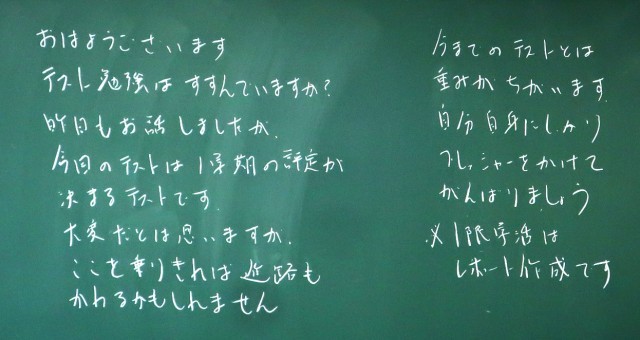 おはようございます
テスト勉強は すすんでいますか?
昨日もお話しましたが、
今回のテストは 1学期の評定が
決まるテストです。
大変だとは思いますが、
ここを乗りきれば 進路も
かわるかもしれません
今までの テストとは
重みが ちがいます。
自分自身にしっかり
プレッシャーをかけて
がんばりましょう
※1限学活は
レポート作成です